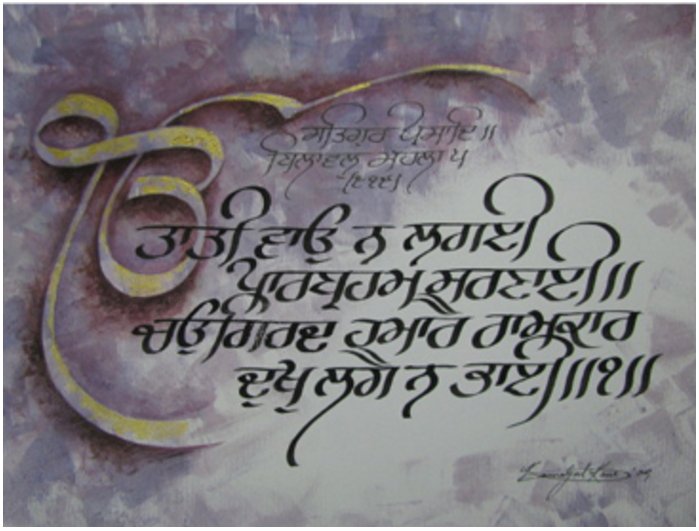 ੴ ਸਤਿਗੁਰ ਪ੍ਰਸਾਦਿ॥
ਬਿਲਾਵਲੁ ਮਹਲਾ ੫
(੮੧੯)
ਤਾਤੀ ਵਾਉ ਨ ਲਗਈ
ਪਾਰਬ੍ਰਹਮ ਸਰਣਾਈ॥
ਚਉਗਿਰਦ ਹਮਾਰੈ ਰਾਮਕਾਰ
ਦੁਖੁ ਲਗੈ ਨ ਭਾਈ॥੧॥